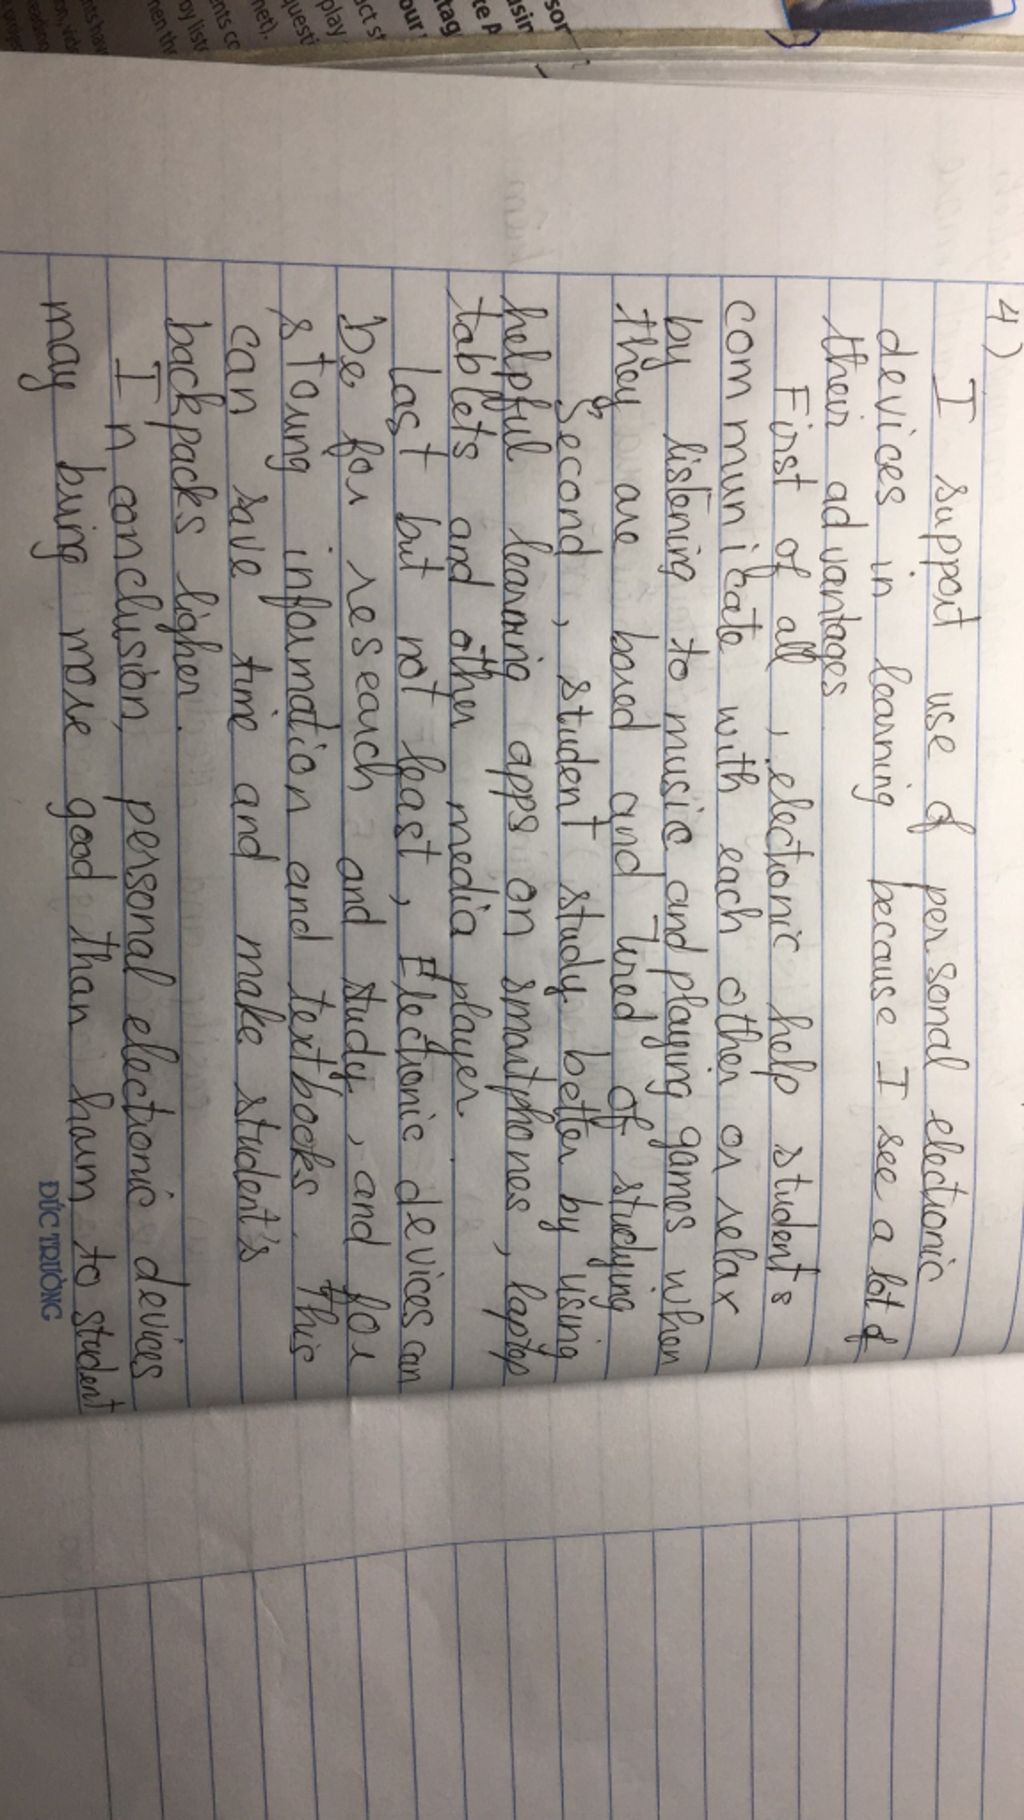 4)
I support use of personal electronic
devices in learning because I see a lot of
their advantages
First of all, electronic help student's
communicate with each other or relax
by listening to music and playing games when
they are bored and tired of studying
Second, student study better by using
helpful learning apps on smartphones, laptop
tablets and other media player.
Last but not least, Electronic devices can
be for research and study, and for
storing information and textbooks. This
can save time and make student's
backpacks ligher.
In conclusion, personal electronic devices
may bring more good than harm to student
ĐỨC TRƯỜNG